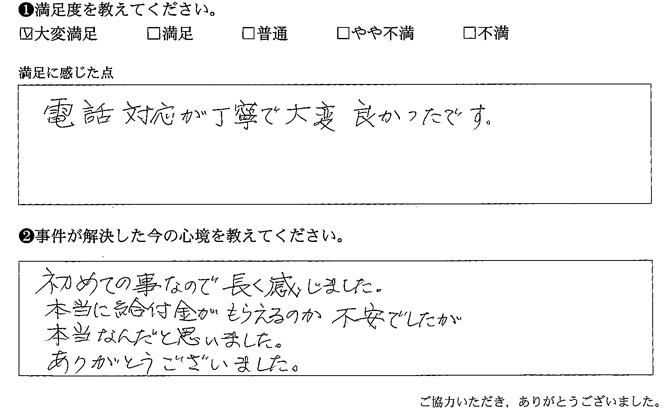 ❶満足度を教えてください。
☑大変満足 □満足 □普通 □やや不満 □不満
満足に感じた点
電話対応が丁寧で大変良かったです。
❷事件が解決した今の心境を教えてください。
初めての事なので長く感じました。
本当に給付金がもらえるのか不安でしたが
本当なんだと思いました。
ありがとうございました。
ご協力いただき，ありがとうございました。